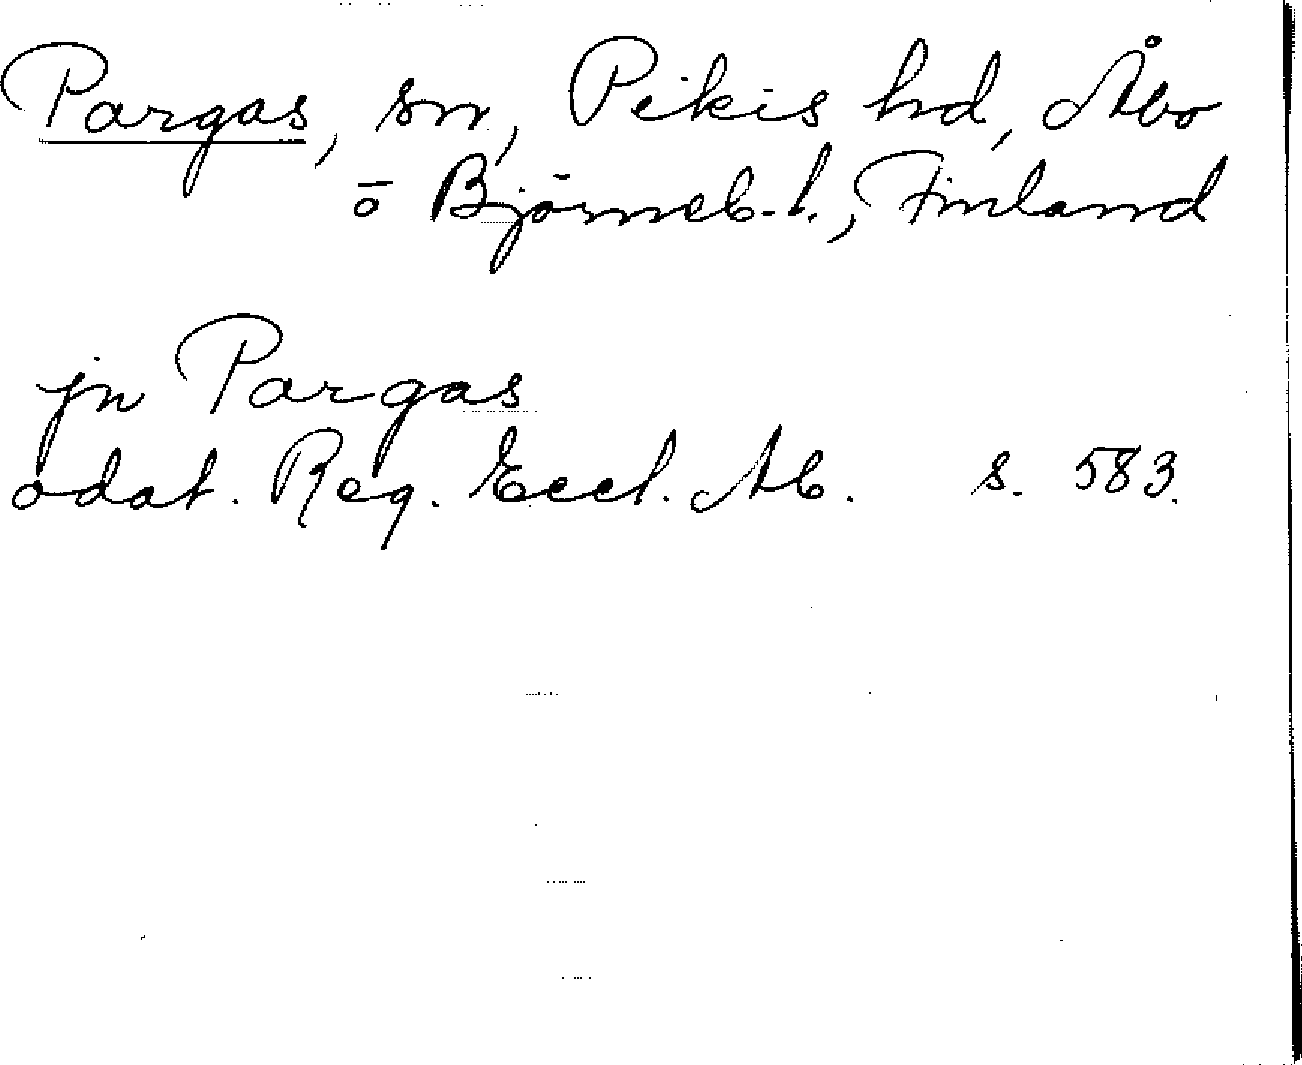 Pargas, sn, Pikis hd, Åbo
o Björneb. l., Finland
jn Pargas
odat. Reg. Eccl. Ab. s. 583.